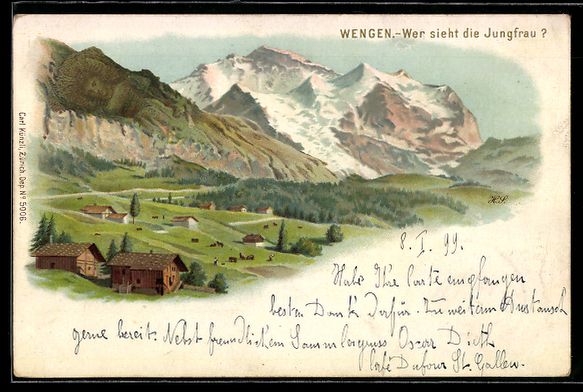 WENGEN.-Wer sieht die Jungfrau?
Carl Künzli, Zürich Dep. Nº 5006.
H.S.
8. I. 99.
Habe Ihre Carte empfangen
besten Dank dafür. Zu weiterem Austausch
gerne bereit. Nebst freundlichem Sammlergruss Oscar Dieth
Café Dufour St. Gallen.